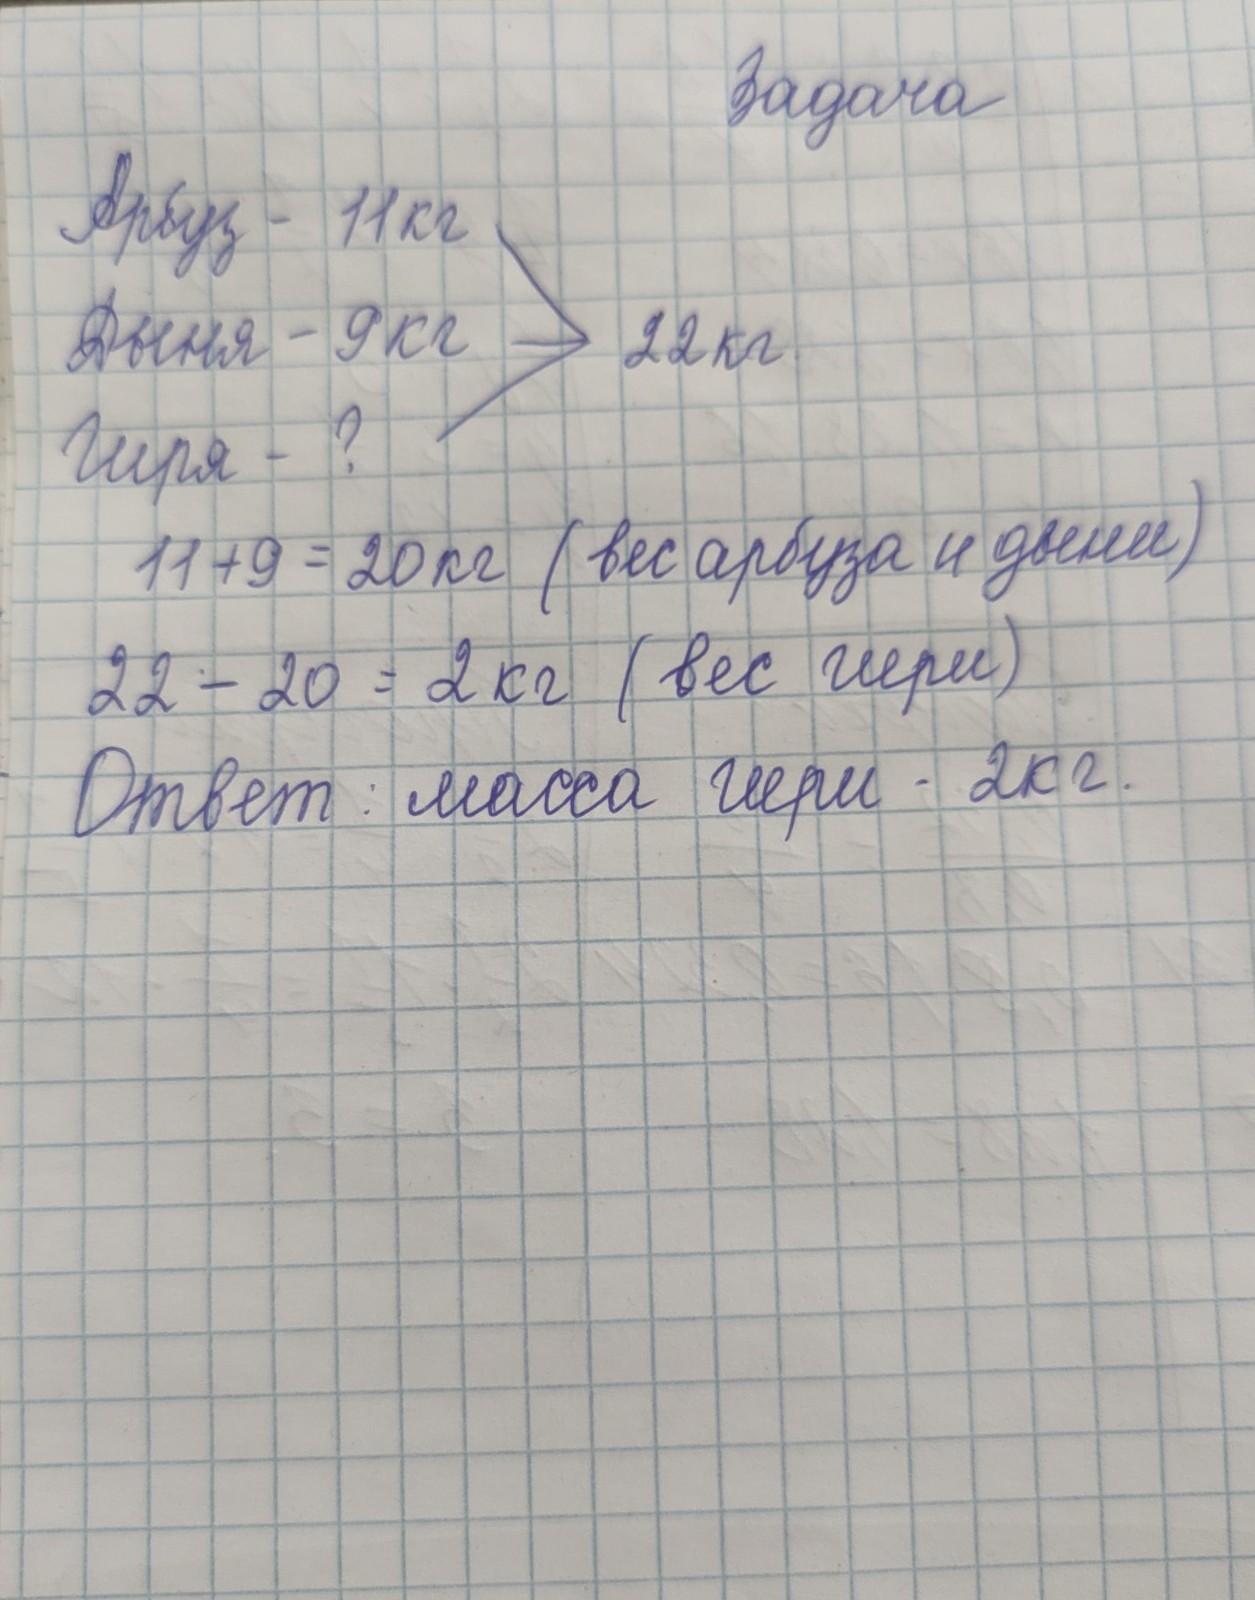 Задача
Арбуз - 11кг
Дыня - 9кг 22кг
Гиря - ?
11+9=20кг (вес арбуза и дыни)
22-20=2кг (вес гири)
Ответ: масса гири - 2кг.